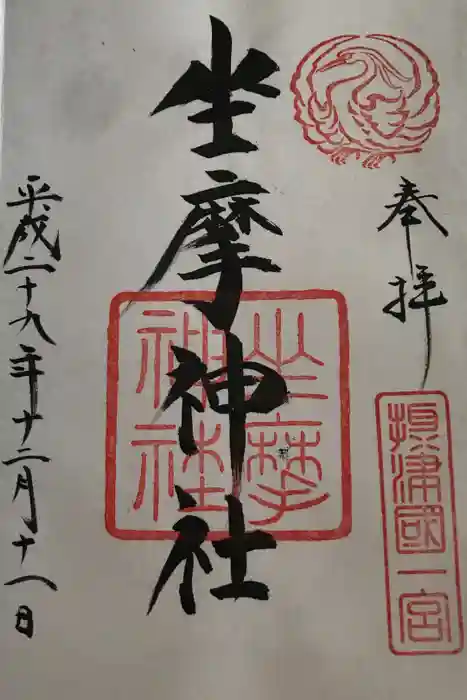 奉拝
摂津國一宮
坐摩神社
坐摩神社
平成二十九年十二月十八日